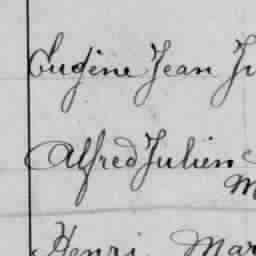 Eugène Jean
Alfred Julien
Henri Mar